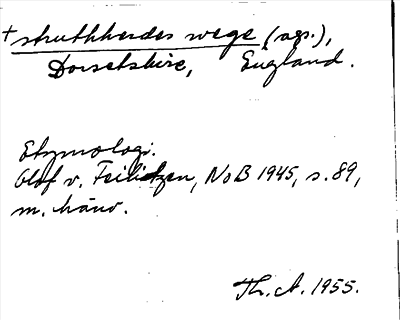 + struthherdes wege (ags.),
Dorsetshire, England.
Etymologi.
Olof v. Feilitzen, NoB 1945, s. 89,
m. hänv.
Th. A. 1955.